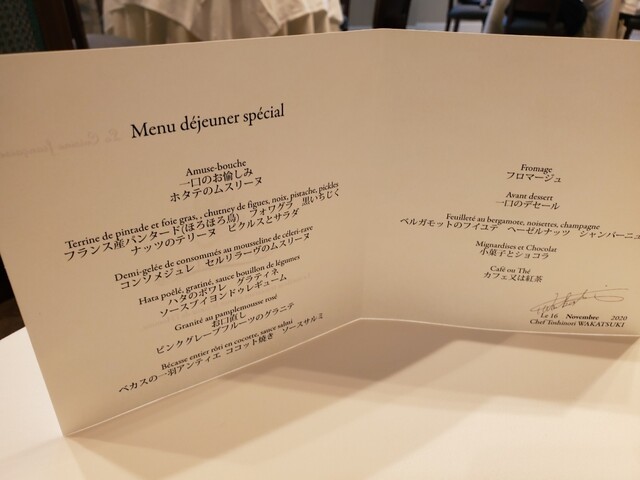 Menu déjeuner spécial
Amuse-bouche
一口のお愉しみ
ホタテのムスリーヌ
Terrine de pintade et foie gras, , chutney de figues, noix, pistache, pickles
フランス産パンタード(ほろほろ鳥) フォワグラ 黒いちじく
ナッツのテリーヌ ピクルスとサラダ
Demi-gelée de consommés au mousseline de céleri-rave
コンソメジュレ セルリラーヴのムスリーヌ
Hata poêlé, gratiné, sauce bouillon de légumes
ハタのポワレ グラティネ
ソースブイヨンドゥレギューム
Granité au pamplemousse rosé
お口直し
ピンクグレープフルーツのグラニテ
Bécasse entier rôti en cocotte, sauce salmi
ベカスの一羽アンティエ ココット焼き ソースサルミ
Fromage
フロマージュ
Avant dessert
一口のデセール
Feuilleté au bergamote, noisettes, champagne
ベルガモットのフイユテ ヘーゼルナッツ シャンパーニュ
Mignardises et Chocolat
小菓子とショコラ
Café ou Thé
カフェ又は紅茶
Le 16 Novembre 2020
Chef Toshinori WAKATSUKI